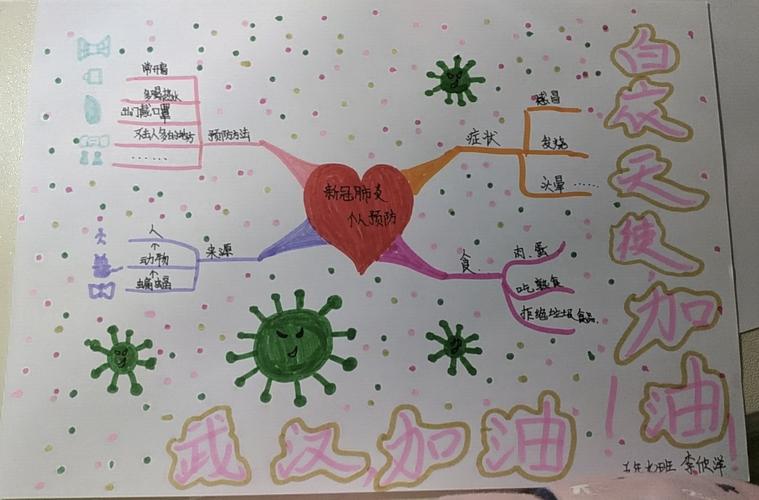 新冠肺炎
个人预防
预防方法
常开窗
多喝热水
出门戴口罩
不去人多的地方
……
来源
人
↑
动物
↑
蝙蝠
症状
感冒
发烧
头晕……
食
肉、蛋
吃熟食
拒绝垃圾食品.
白衣天使,加油!
武汉,加油!
李欣洋